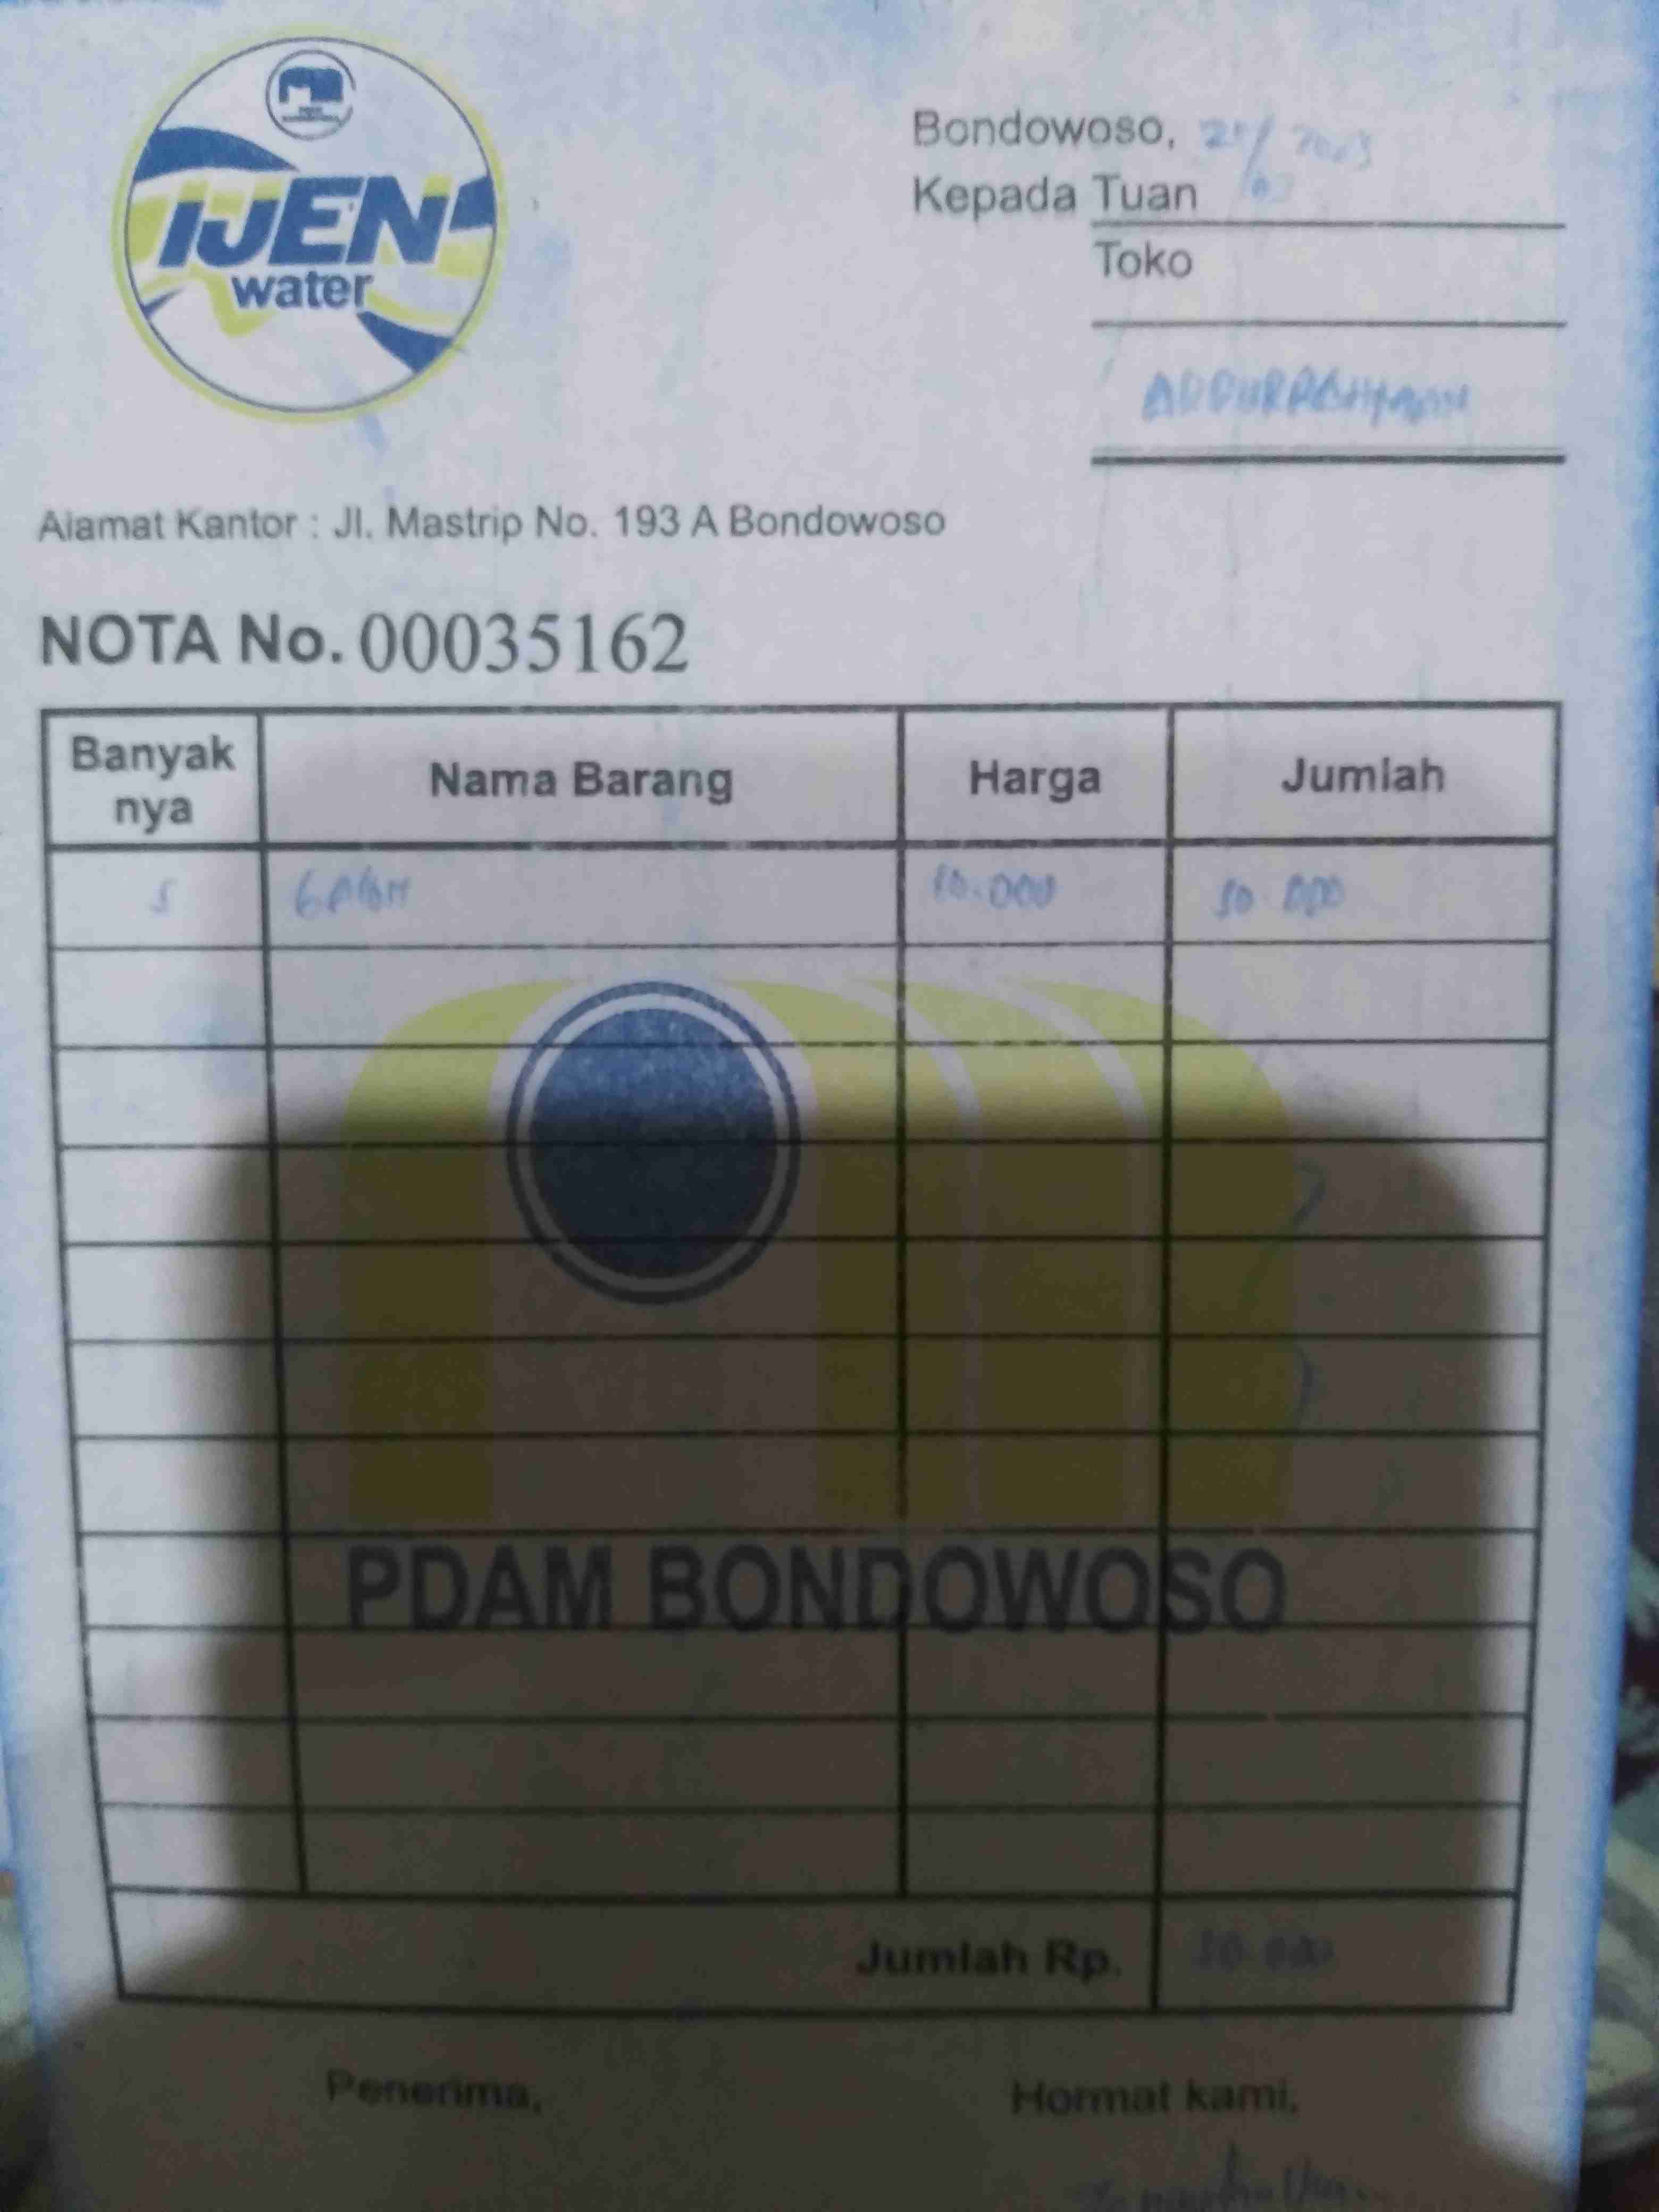 IJEN
water
Bondowoso,
Kepada Tuan
Toko
ABDURRAHMAN
Alamat Kantor : Jl. Mastrip No. 193 A Bondowoso
NOTA No. 00035162
Banyak nya Nama Barang Harga Jumlah
5 GALON 10.000 50.000
PDAM BONDOWOSO
Jumlah Rp. 50.000
Penerima, Hormat kami,